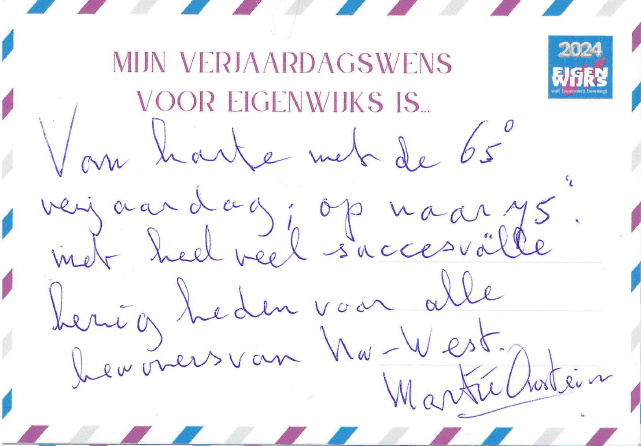 MIJN VERJAARDAGSWENS
VOOR EIGENWIJKS IS...
2024
EIGEN
WIJKS
Van harte met de 65°
verjaardag; op naar 75°.
met heel veel succesvólle
bezig heden voor alle
bewoners van Nw-West.